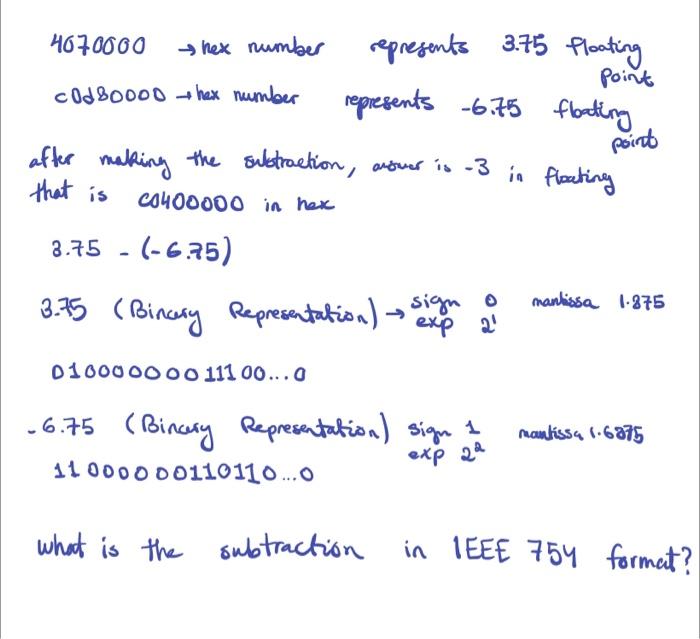 4070000 → hex number represents 3.75 floating point
c0d80000 → hex number represents -6.75 floating point
after making the subtraction, answer is -3 in floating
that is c0400000 in hex
3.75 - (-6.75)
3.75 (Binary Representation) → sign 0 mantissa 1.875
exp 2¹
01000000011100...0
-6.75 (Binary Representation) sign 1 mantissa 1.6875
exp 2²
11000000110110...0
what is the subtraction in IEEE 754 format?